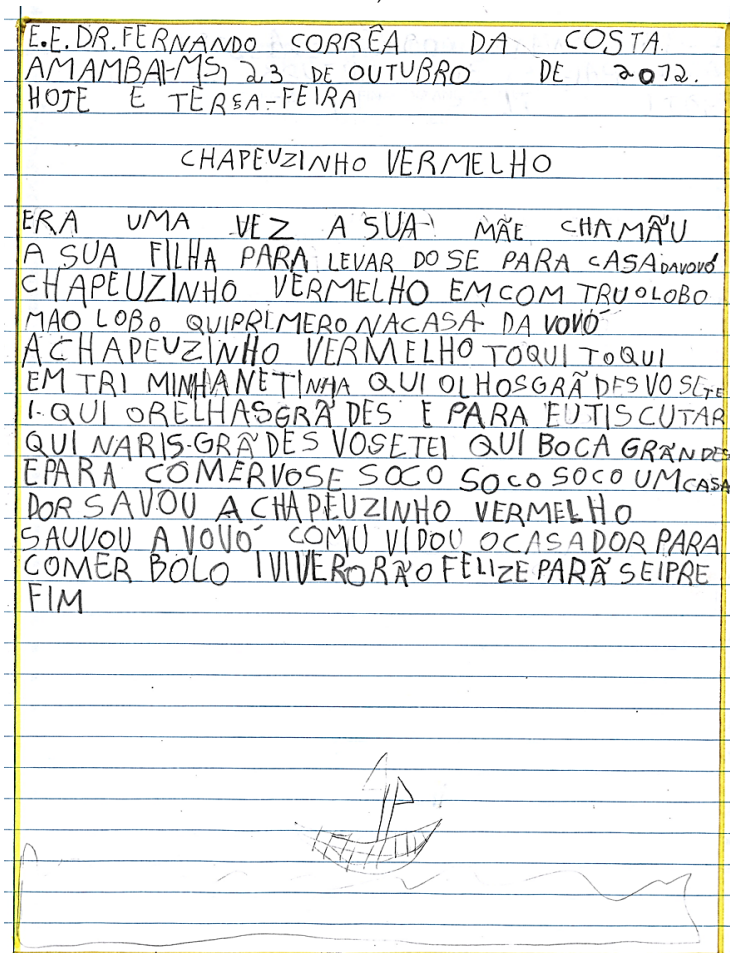 E.E.DR.FERNANDO CORRÊA DA COSTA.
AMAMBAI-MS, 23 DE OUTUBRO DE 2012.
HOJE E TERSA-FEIRA
CHAPEUZINHO VERMELHO
ERA UMA VEZ A SUA MÃE CHAMÃU
A SUA FILHA PARA LEVAR DOSE PARA CASA DAVOVÓ
CHAPEUZINHO VERMELHO EMCOM TRUOLOBO
MAO LOBO QUIPRIMERO NACASA DA VOVÓ
ACHAPEUZINHO VERMELHO TOQUI TOQUI
EM TRI MINHANETINHA QUI OLHOSGRÃ DES VOSETE
I. QUI ORELHASGRÃ DES E PARA EUTISCUTAR
QUI NARIS-GRÃ DES VOSETEI QUI BOCA GRÃNDES
EPARA COMERVOSE SOCO SOCO SOCO UMCASA
DOR SAVOU A CHAPEUZINHO VERMELHO
SAUVOU A VOVÓ COMU VIDOU OCASADOR PARA
COMER BOLO IVIVERORÃO FELIZE PARÃ SEIPRE
FIM